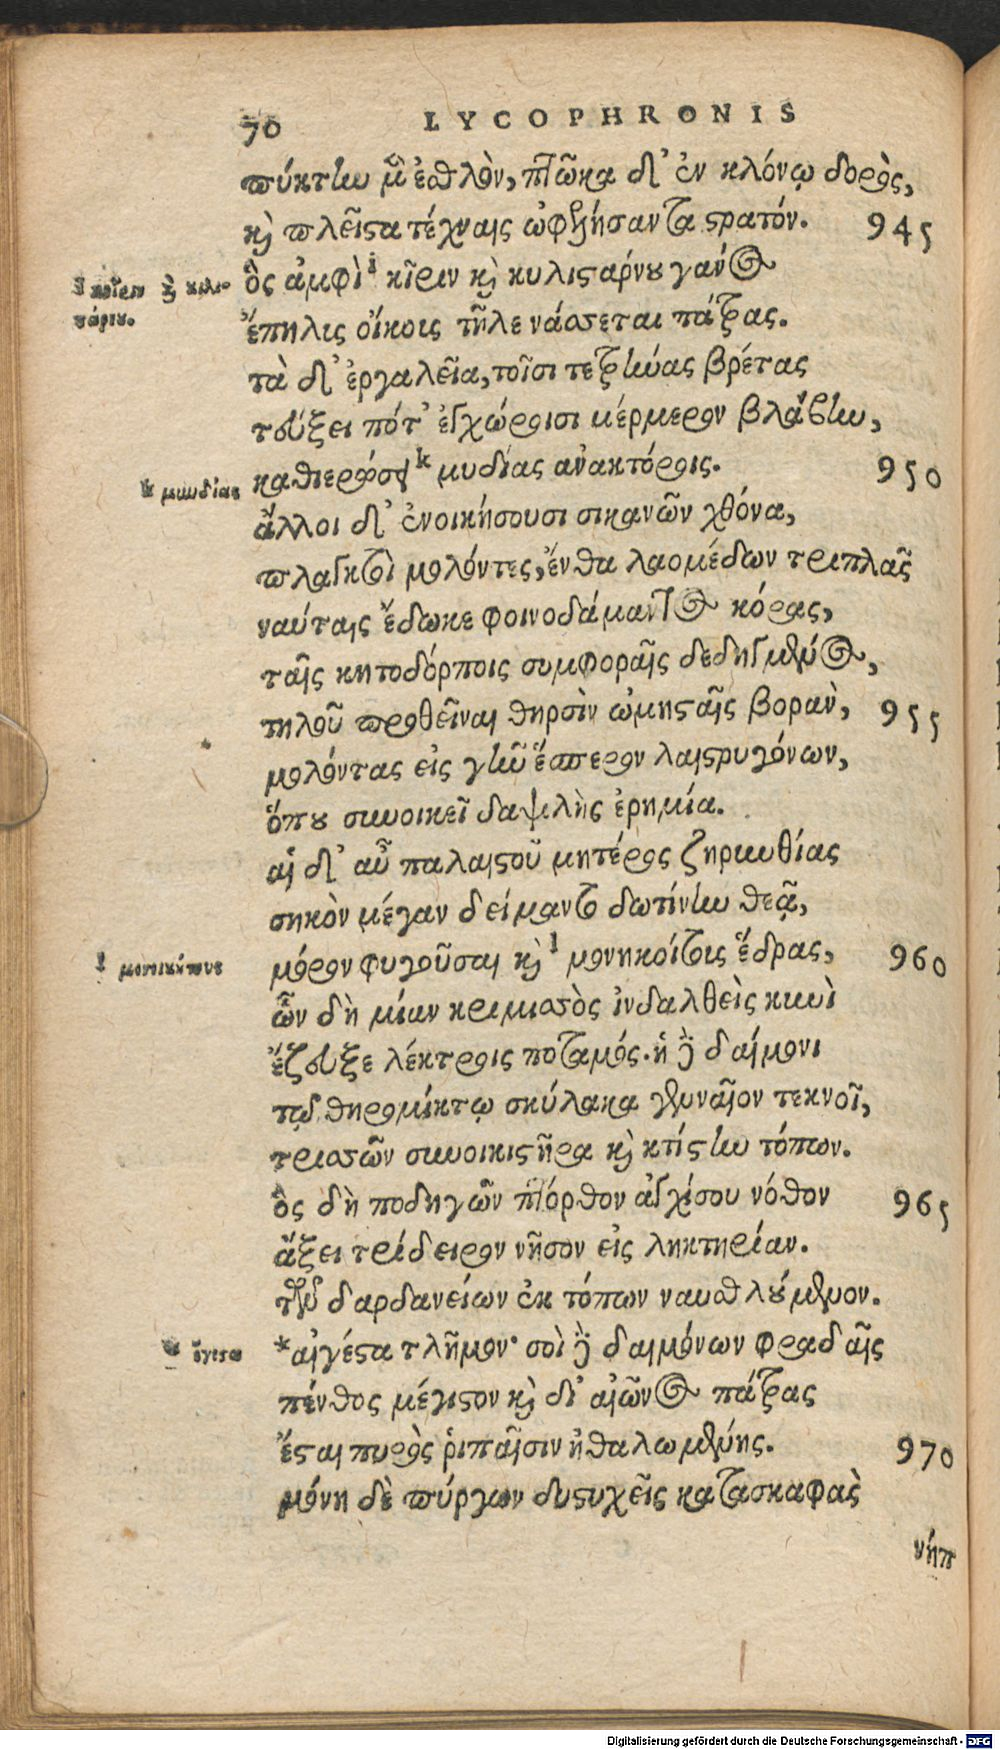 70 LYCOPHRONIS
πύκτην μὲν ἐσθλὸν, πτῶκα δ' ἐν κλόνῳ δορὸς,
καὶ πλεῖστα τέχναις ὠφελήσαντα στρατόν. 945
ὃς ἀμφὶ i κῖριν καὶ κυλιστάρνου γάνος
ἔπηλις οἴκοις τῆλε νάσσεται πάτρας.
τὰ δ' ἐργαλεῖα, τοῖσι τετρήνας βρέτας
τεύξει πότ' ἐγχώροισι μέρμερον βλάβην,
καθιερώσει k μυδίας ἀνακτόροις. 950
k μυνδίας
ἄλλοι δ' ἐνοικήσουσι σικανῶν χθόνα,
πλαγκτοὶ μολόντες, ἔνθα λαομέδων τριπλᾶς
ναύταις ἔδωκε φοινοδάμαντος κόρας,
ταῖς κητοδόρποις συμφοραῖς δεδηγμένος,
τηλοῦ προθεῖναι θηρσὶν ὠμησταῖς βορὰν, 955
μολόντας εἰς γῆν ἕσπερον λαιστρυγόνων,
ὅπου συνοικεῖ δαψιλὴς ἐρημία.
αἱ δ' αὖ παλαιστοῦ μητέρος ζηρυνθίας
σηκὸν μέγαν δείμαντο δωτίνην θεᾷ,
μόρον φυγοῦσαι καὶ l μονηκοίτοις ἕδρας, 960
l μονοικήτους
ὧν δὴ μίαν κριμισσὸς ἰνδαλθεὶς κυνὶ
ἔζευξε λέκτροις ποταμός. ἡ δὲ δαίμονι
τῷ θηρομίκτῳ σκύλακα γενναῖον τεκνοῖ,
τρισσῶν συνοικιστῆρα καὶ κτίστην τόπων.
ὃς δὴ ποδηγῶν πτόρθον ἀγχίσου νόθον 965
ἄξει τρίδειρον νῆσον εἰς ληκτηρίαν.
τῶν δαρδανείων ἐκ τόπων ναυσθλούμενον.
* αἰγέστα τλῆμον· σοὶ δὲ δαιμόνων φραδαῖς
πένθος μέγιστον καὶ δι' αἰῶνος πάτρας
ἔσται πυρὸς ῥιπαῖσιν ᾐθαλωμένης. 970
μόνη δὲ πύργων δυστυχεῖς κατασκαφὰς
νήπ
Digitalisierung gefördert durch die Deutsche Forschungsgemeinschaft - DFG